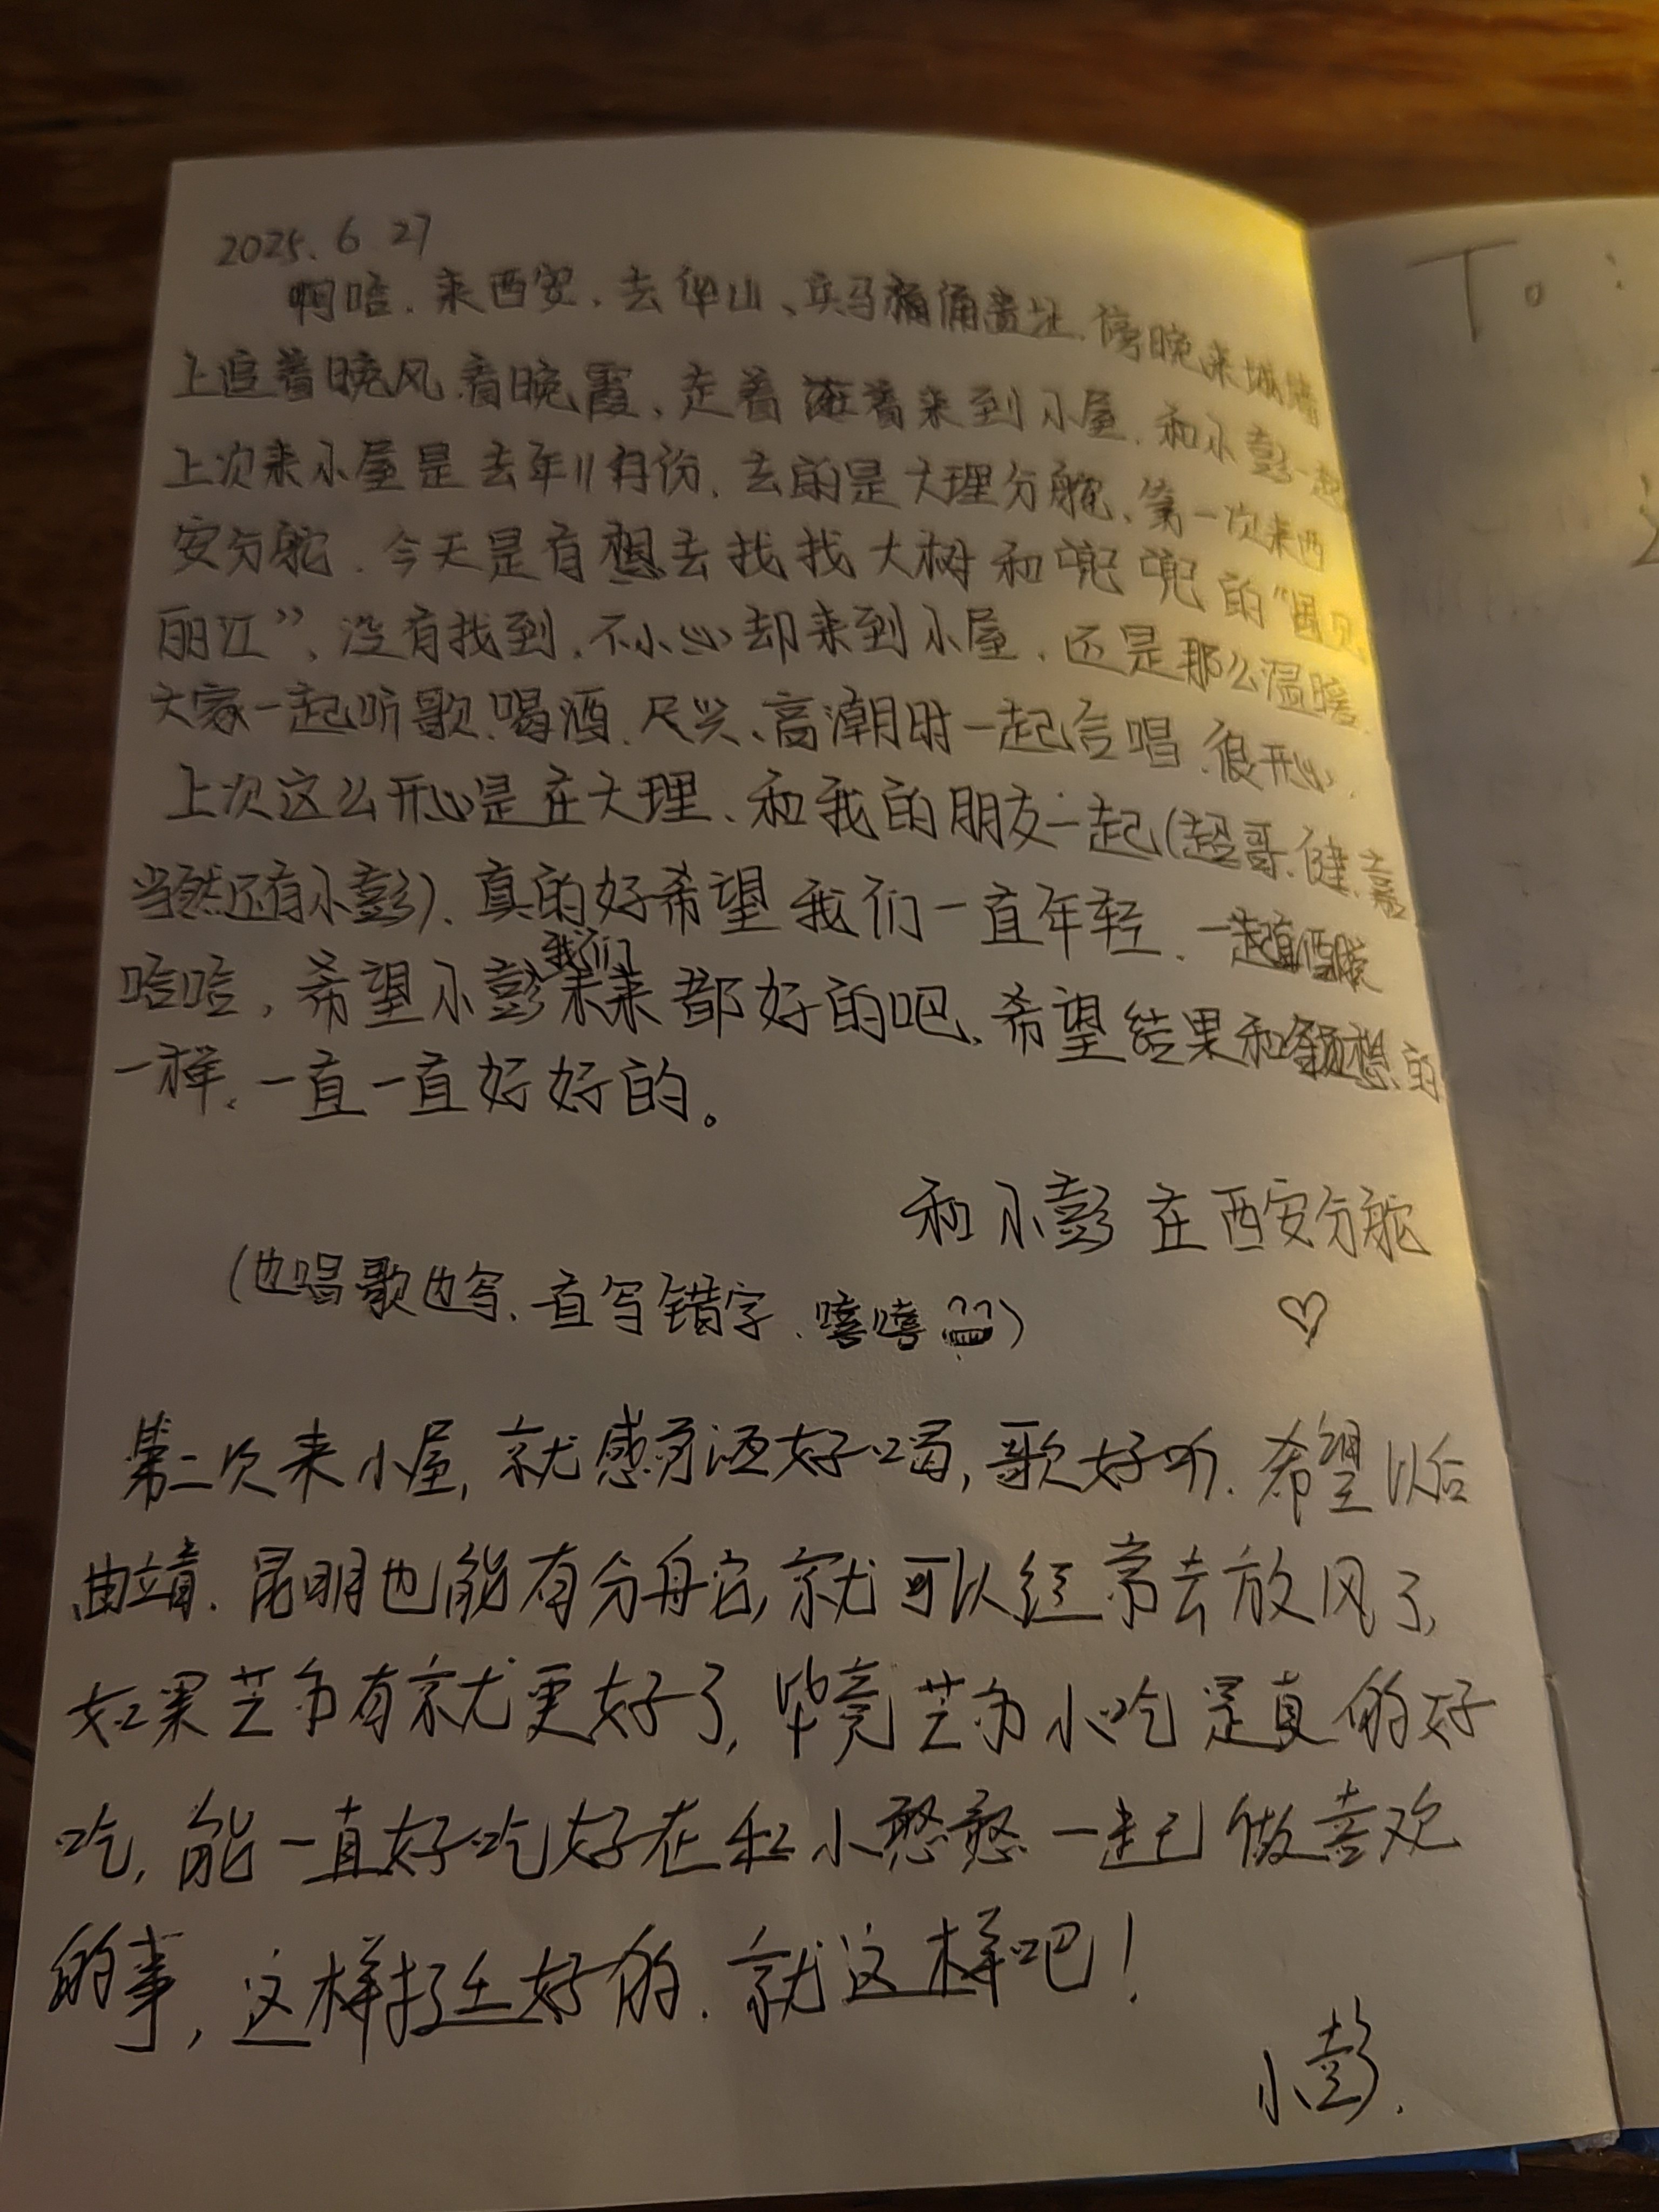 2025.6.27
啊哈.来西安.去华山、兵马俑遗址.傍晚来城墙
上追着晚风.看晚霞、走着逛着来到小屋.和小彭一起
上次来小屋是去年11月份.去的是大理分舵、第一次来西
安分舵.今天是有想去找找大树和兜兜的“遇见
丽江”、没有找到.不小心却来到小屋.还是那么温暖.
大家一起听歌.喝酒.尽兴、高潮时一起合唱.很开心.
上次这么开心是在大理、和我的朋友一起(超哥.健.嘉
当然还有小彭).真的好希望我们一直年轻.一起
哈哈,希望小彭我们未来都好的吧、希望结果和预想的
一样、一直一直好好的。
和小彭在西安分舵
(也唱歌也写.一直写错字.嘻嘻)
♡
第二次来小屋,就感觉酒好喝,歌好听.希望以后
曲靖.昆明也能有分舵,就可以经常去放风了,
如果芒市有就更好了,毕竟芒市小吃是真的好
吃,能一直好吃好在和小憨憨一起做喜欢
的事,这样挺好的.就这样吧!
小彭.
To: